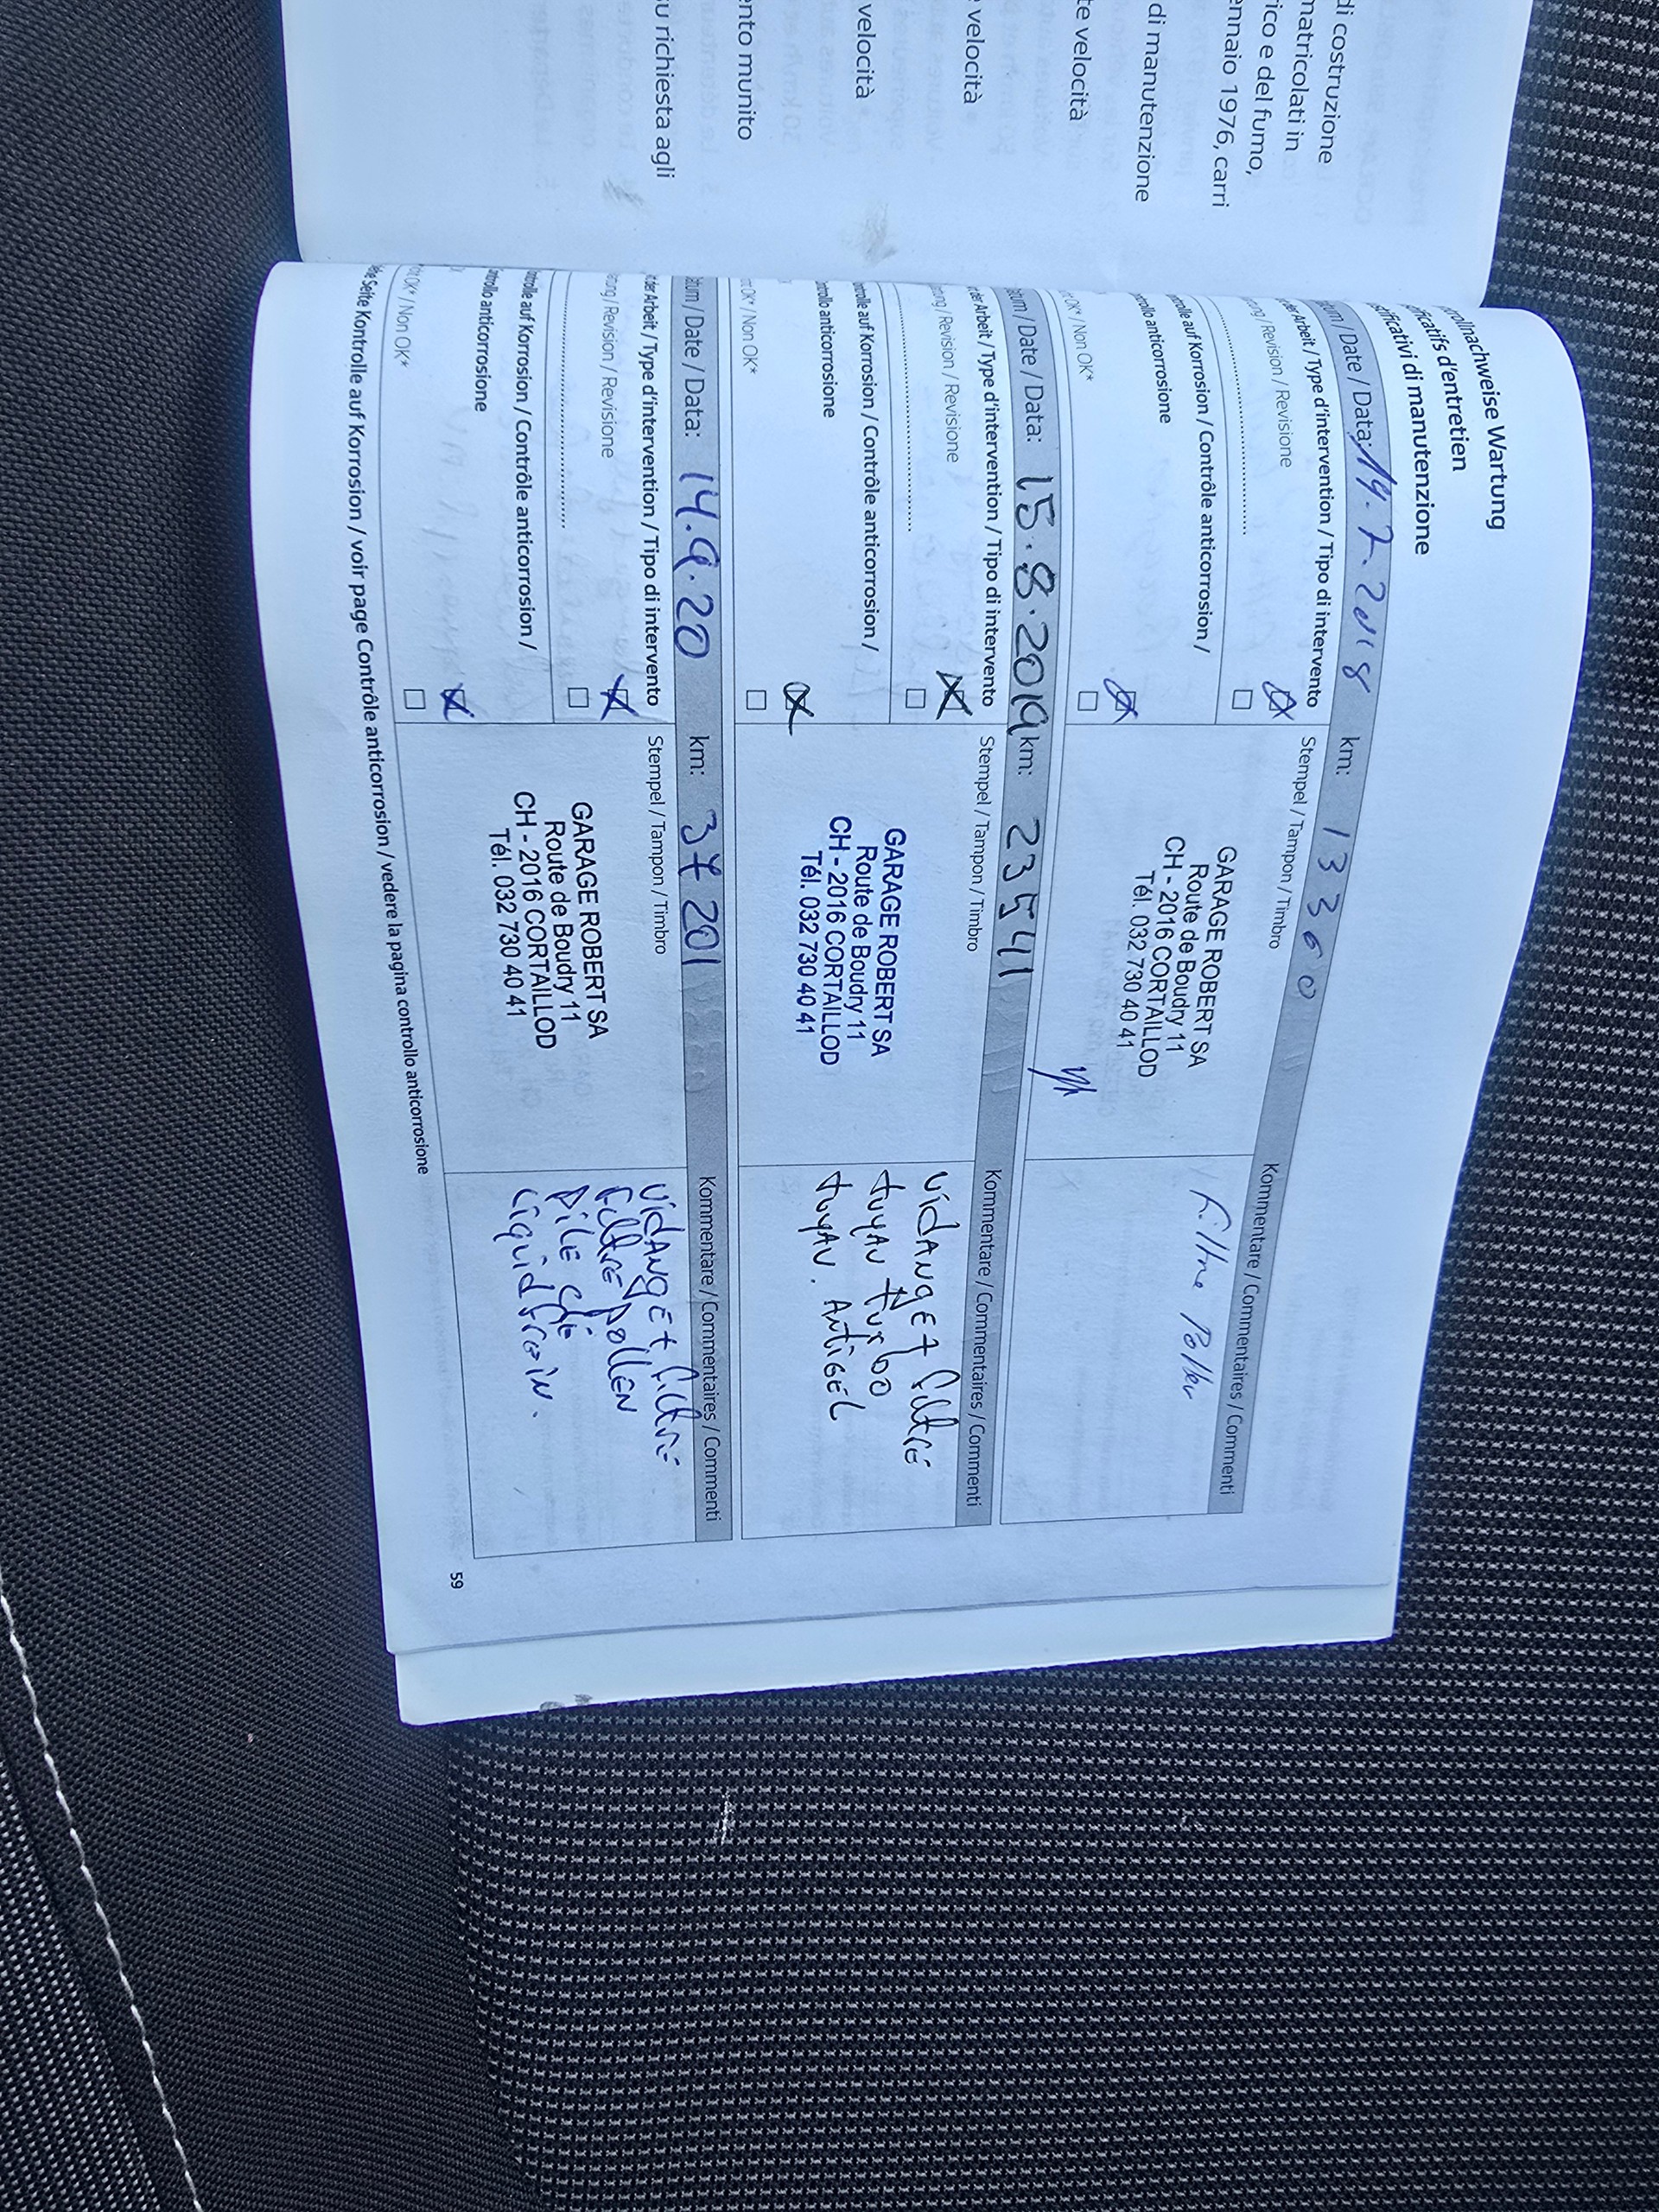 di costruzione
matricolati in
ico e del fumo,
ennaio 1976, carri
di manutenzione
te velocità
velocità
velocità
ento munito
u richiesta agli
rollnachweise Wartung
ificatifs d'entretien
ificativi di manutenzione
um / Date / Data: 19.7.2018 km: 13360
der Arbeit / Type d'intervention / Tipo di intervento
ung / Revision / Revisione
rolle auf Korrosion / Contrôle anticorrosion /
rollo anticorrosione
OK* / Non OK*
Stempel / Tampon / Timbro
GARAGE ROBERT SA
Route de Boudry 11
CH - 2016 CORTAILLOD
Tél. 032 730 40 41
Kommentare / Commentaires / Commenti
Filtre Pollen
tum / Date / Data: 15.8.2019 km: 23541
der Arbeit / Type d'intervention / Tipo di intervento
ung / Revision / Revisione
ntrolle auf Korrosion / Contrôle anticorrosion /
ntrollo anticorrosione
OK* / Non OK*
Stempel / Tampon / Timbro
GARAGE ROBERT SA
Route de Boudry 11
CH - 2016 CORTAILLOD
Tél. 032 730 40 41
Kommentare / Commentaires / Commenti
VidANgE + filtre
tuyAu turbo
tuyAu. ANtigEL
tum / Date / Data: 14.9.20 km: 37201
der Arbeit / Type d'intervention / Tipo di intervento
ung / Revision / Revisione
ntrolle auf Korrosion / Contrôle anticorrosion /
ntrollo anticorrosione
OK* / Non OK*
Stempel / Tampon / Timbro
GARAGE ROBERT SA
Route de Boudry 11
CH - 2016 CORTAILLOD
Tél. 032 730 40 41
Kommentare / Commentaires / Commenti
VidANgE + filtre
filtre pollEN
PiLE clé
Liquid frein.
ehe Seite Kontrolle auf Korrosion / voir page Contrôle anticorrosion / vedere la pagina controllo anticorrosione
59